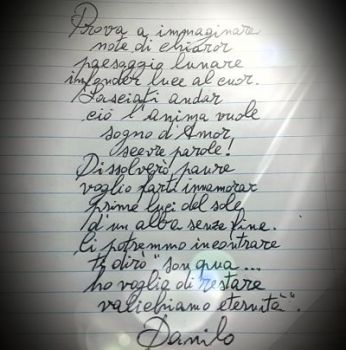 Prova a immaginare
note di chiaror
paesaggio lunare
infonder luce al cuor.
Lasciati andar
ciò l'anima vuole
sogno d'Amor
scevre parole!
Dissolverò paure
voglio farti innamorar
prime luci del sole
d'un alba senza fine.
Li potremmo incontrare
ti dirò "son qua...
ho voglia di restare
valichiamo eternità".
Danilo